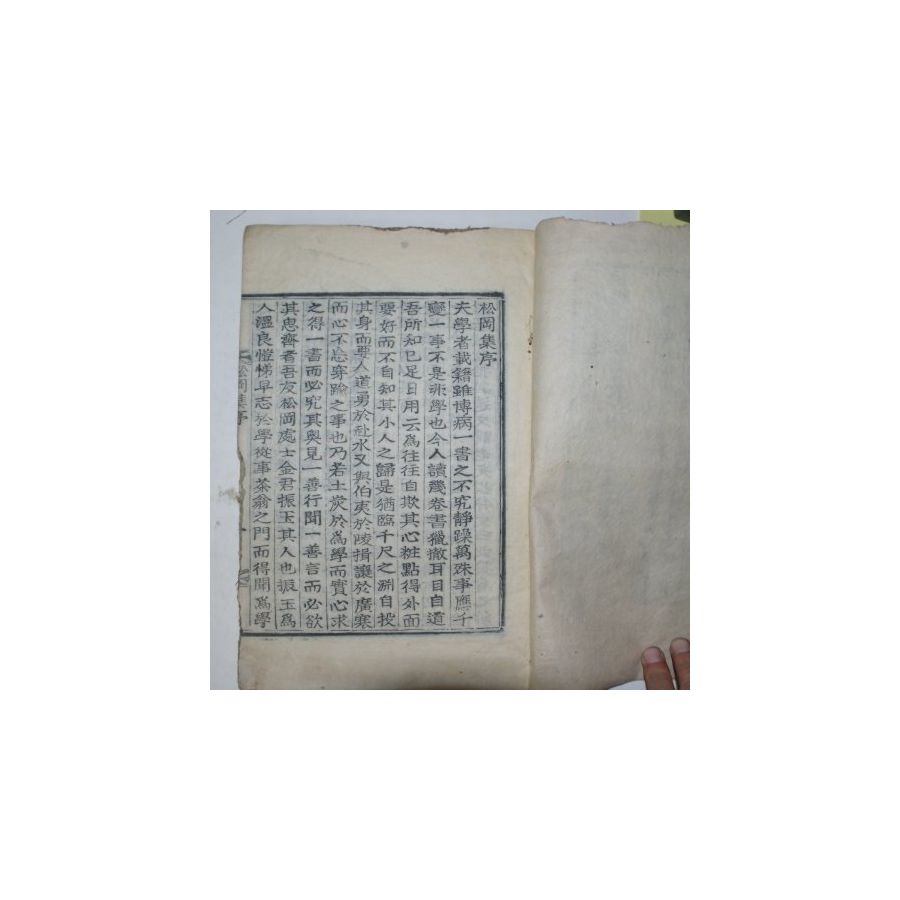 松岡集序
夫學者載籍雖博病一書之不究靜躁萬殊事應千
變一事不是非學也今人讀幾卷書獵撤耳目自道
吾所知已足日用云爲往往自欺其心粧點得外面
要好而不自知其小人之歸是猶臨千尺之淵自投
其身而要人道勇於赴水又與伯夷於陵揖讓於廣衆
而心不忘穿踰之事也乃若土炭於爲學而實心求
之得一書而必究其奧見一善行聞一善言而必欲
其思齊者吾友松岡處士金君振玉其人也振玉爲
人溫良愷悌早志於學從事茶翁之門而得聞爲學
松岡集序